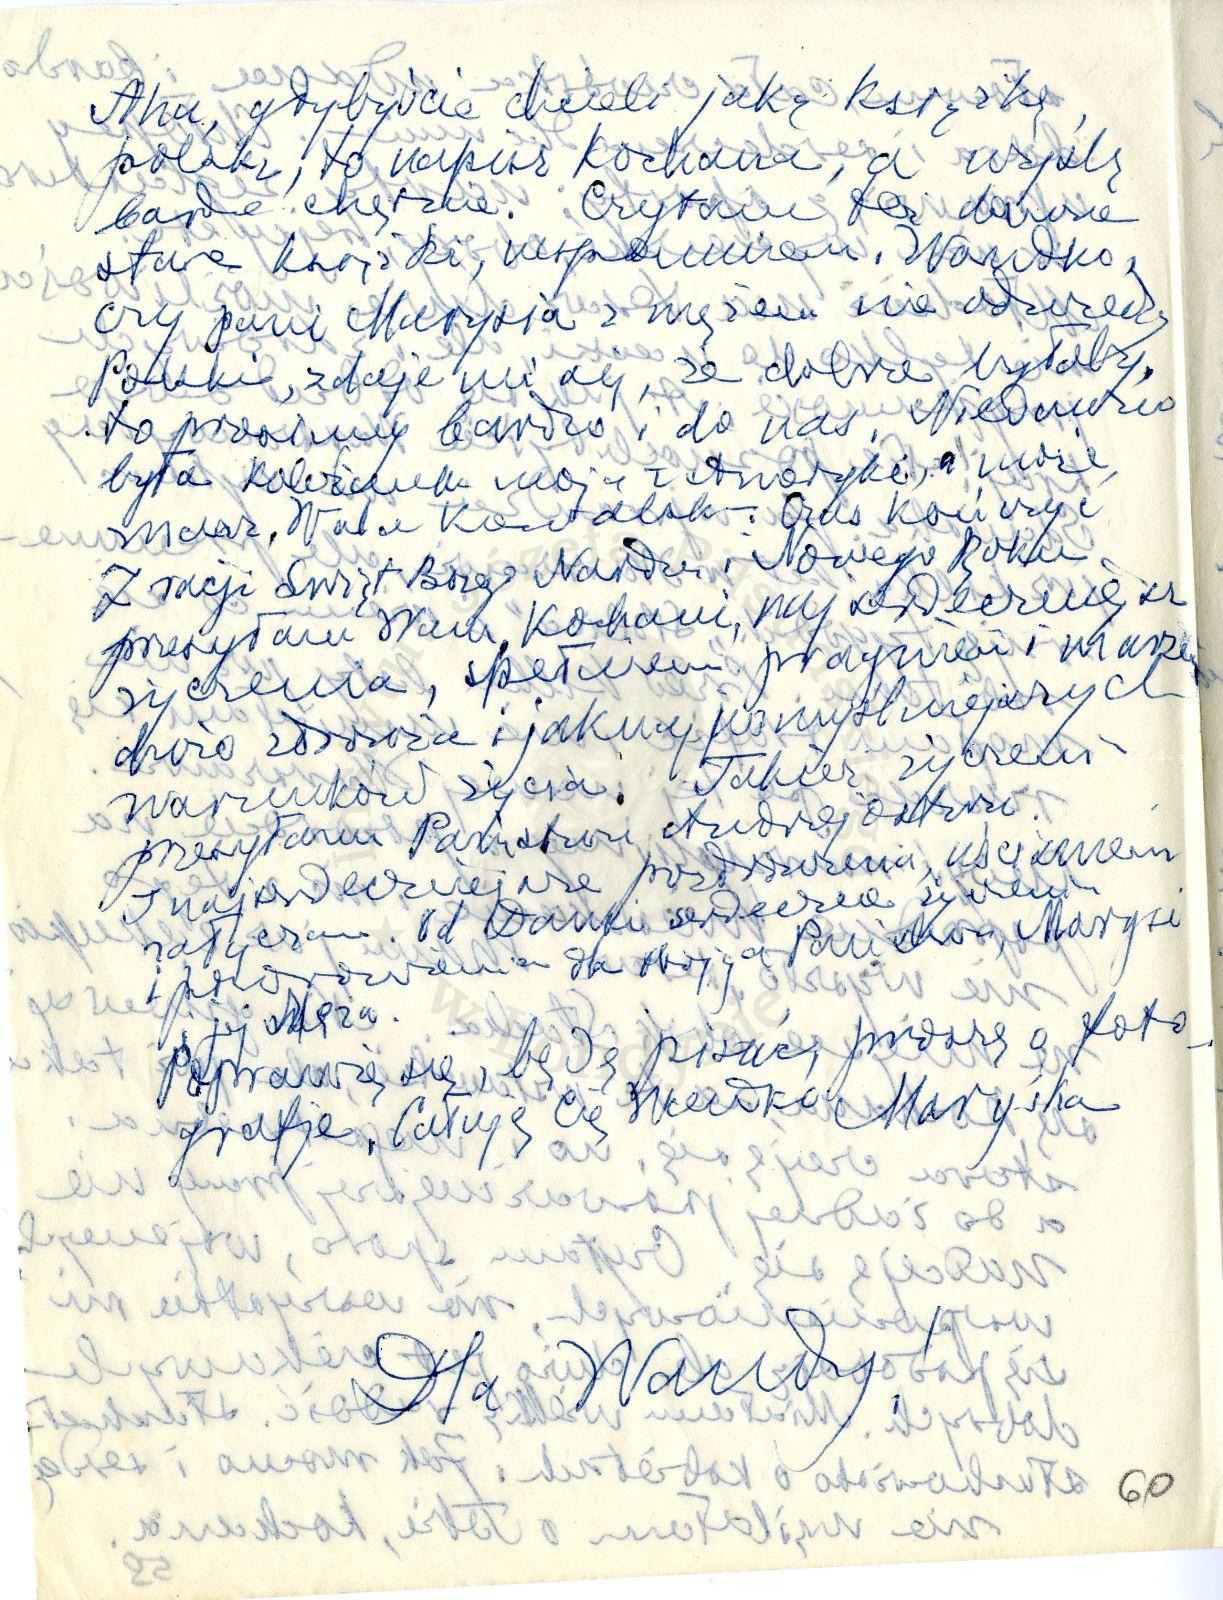 Aha, gdybyście chcieli jaką książkę,
polską, to napisz Kochana, a wyślę
bardzo chętnie. Czytam też dawne
stare książki, wspomnienia. Wandko,
czy pani Marysia z mężem nie odwiedzą
Polski, zdaje mi się, że dobrze byłoby,
to prosimy bardzo i do nas. Niedawno
była koleżanka moja z Ameryki, a może
znasz, Wala. Czas kończyć
Z racji Świąt Bożego Narodz. i Nowego Roku
przesyłam Wam, Kochani, najserdeczniejsze
życzenia, spełnienia pragnień i marzeń
dużo zdrowia i jaknajpomyślniejszych
warunków życia. Takież życzenia
przesyłam Państwu
Najserdeczniejsze pozdrowienia, uściśnień
załączam. Od Danki serdeczne życzenia
i pozdrowienia dla Państwa, Marysi
i jej Męża.
Poprawię się, będę pisać, proszę o foto-
grafje. Całuję Cię Wandko Maryśka
Dla Wandy!
60